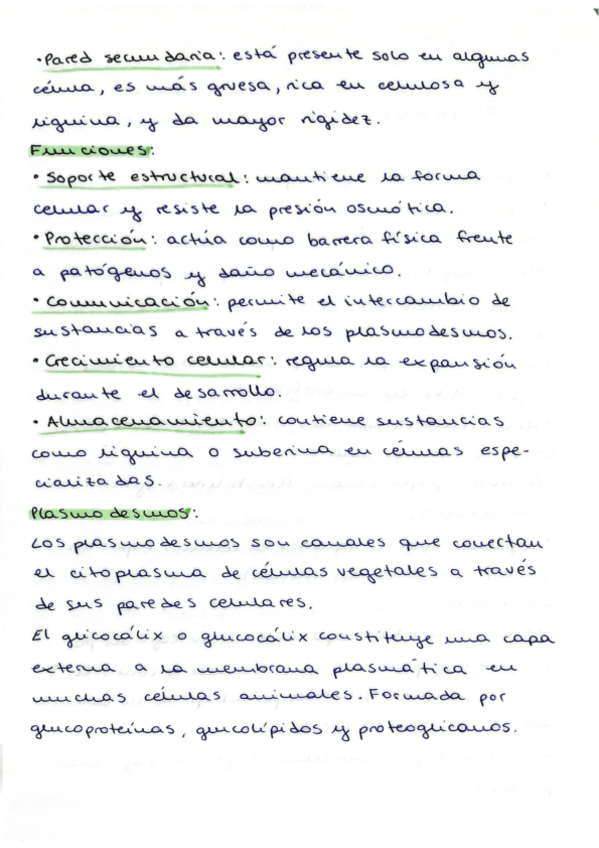 •Pared secundaria: está presente solo en algunas
célula, es más gruesa, rica en celulosa y
lignina, y da mayor rigidez.
Funciones:
• Soporte estructural: mantiene la forma
celular y resiste la presión osmótica.
• Protección: actúa como barrera física frente
a patógenos y daño mecánico.
• Comunicación: permite el intercambio de
sustancias a través de los plasmodesmos.
• Crecimiento celular: regula la expansión
durante el desarrollo.
• Almacenamiento: contiene sustancias
como lignina o suberina en células espe-
cializadas.
Plasmodesmos:
Los plasmodesmos son canales que conectan
el citoplasma de células vegetales a través
de sus paredes celulares.
El glicocálix o glucocálix constituye una capa
externa a la membrana plasmática en
muchas células animales. Formada por
glucoproteínas, glucolípidos y proteoglicanos.